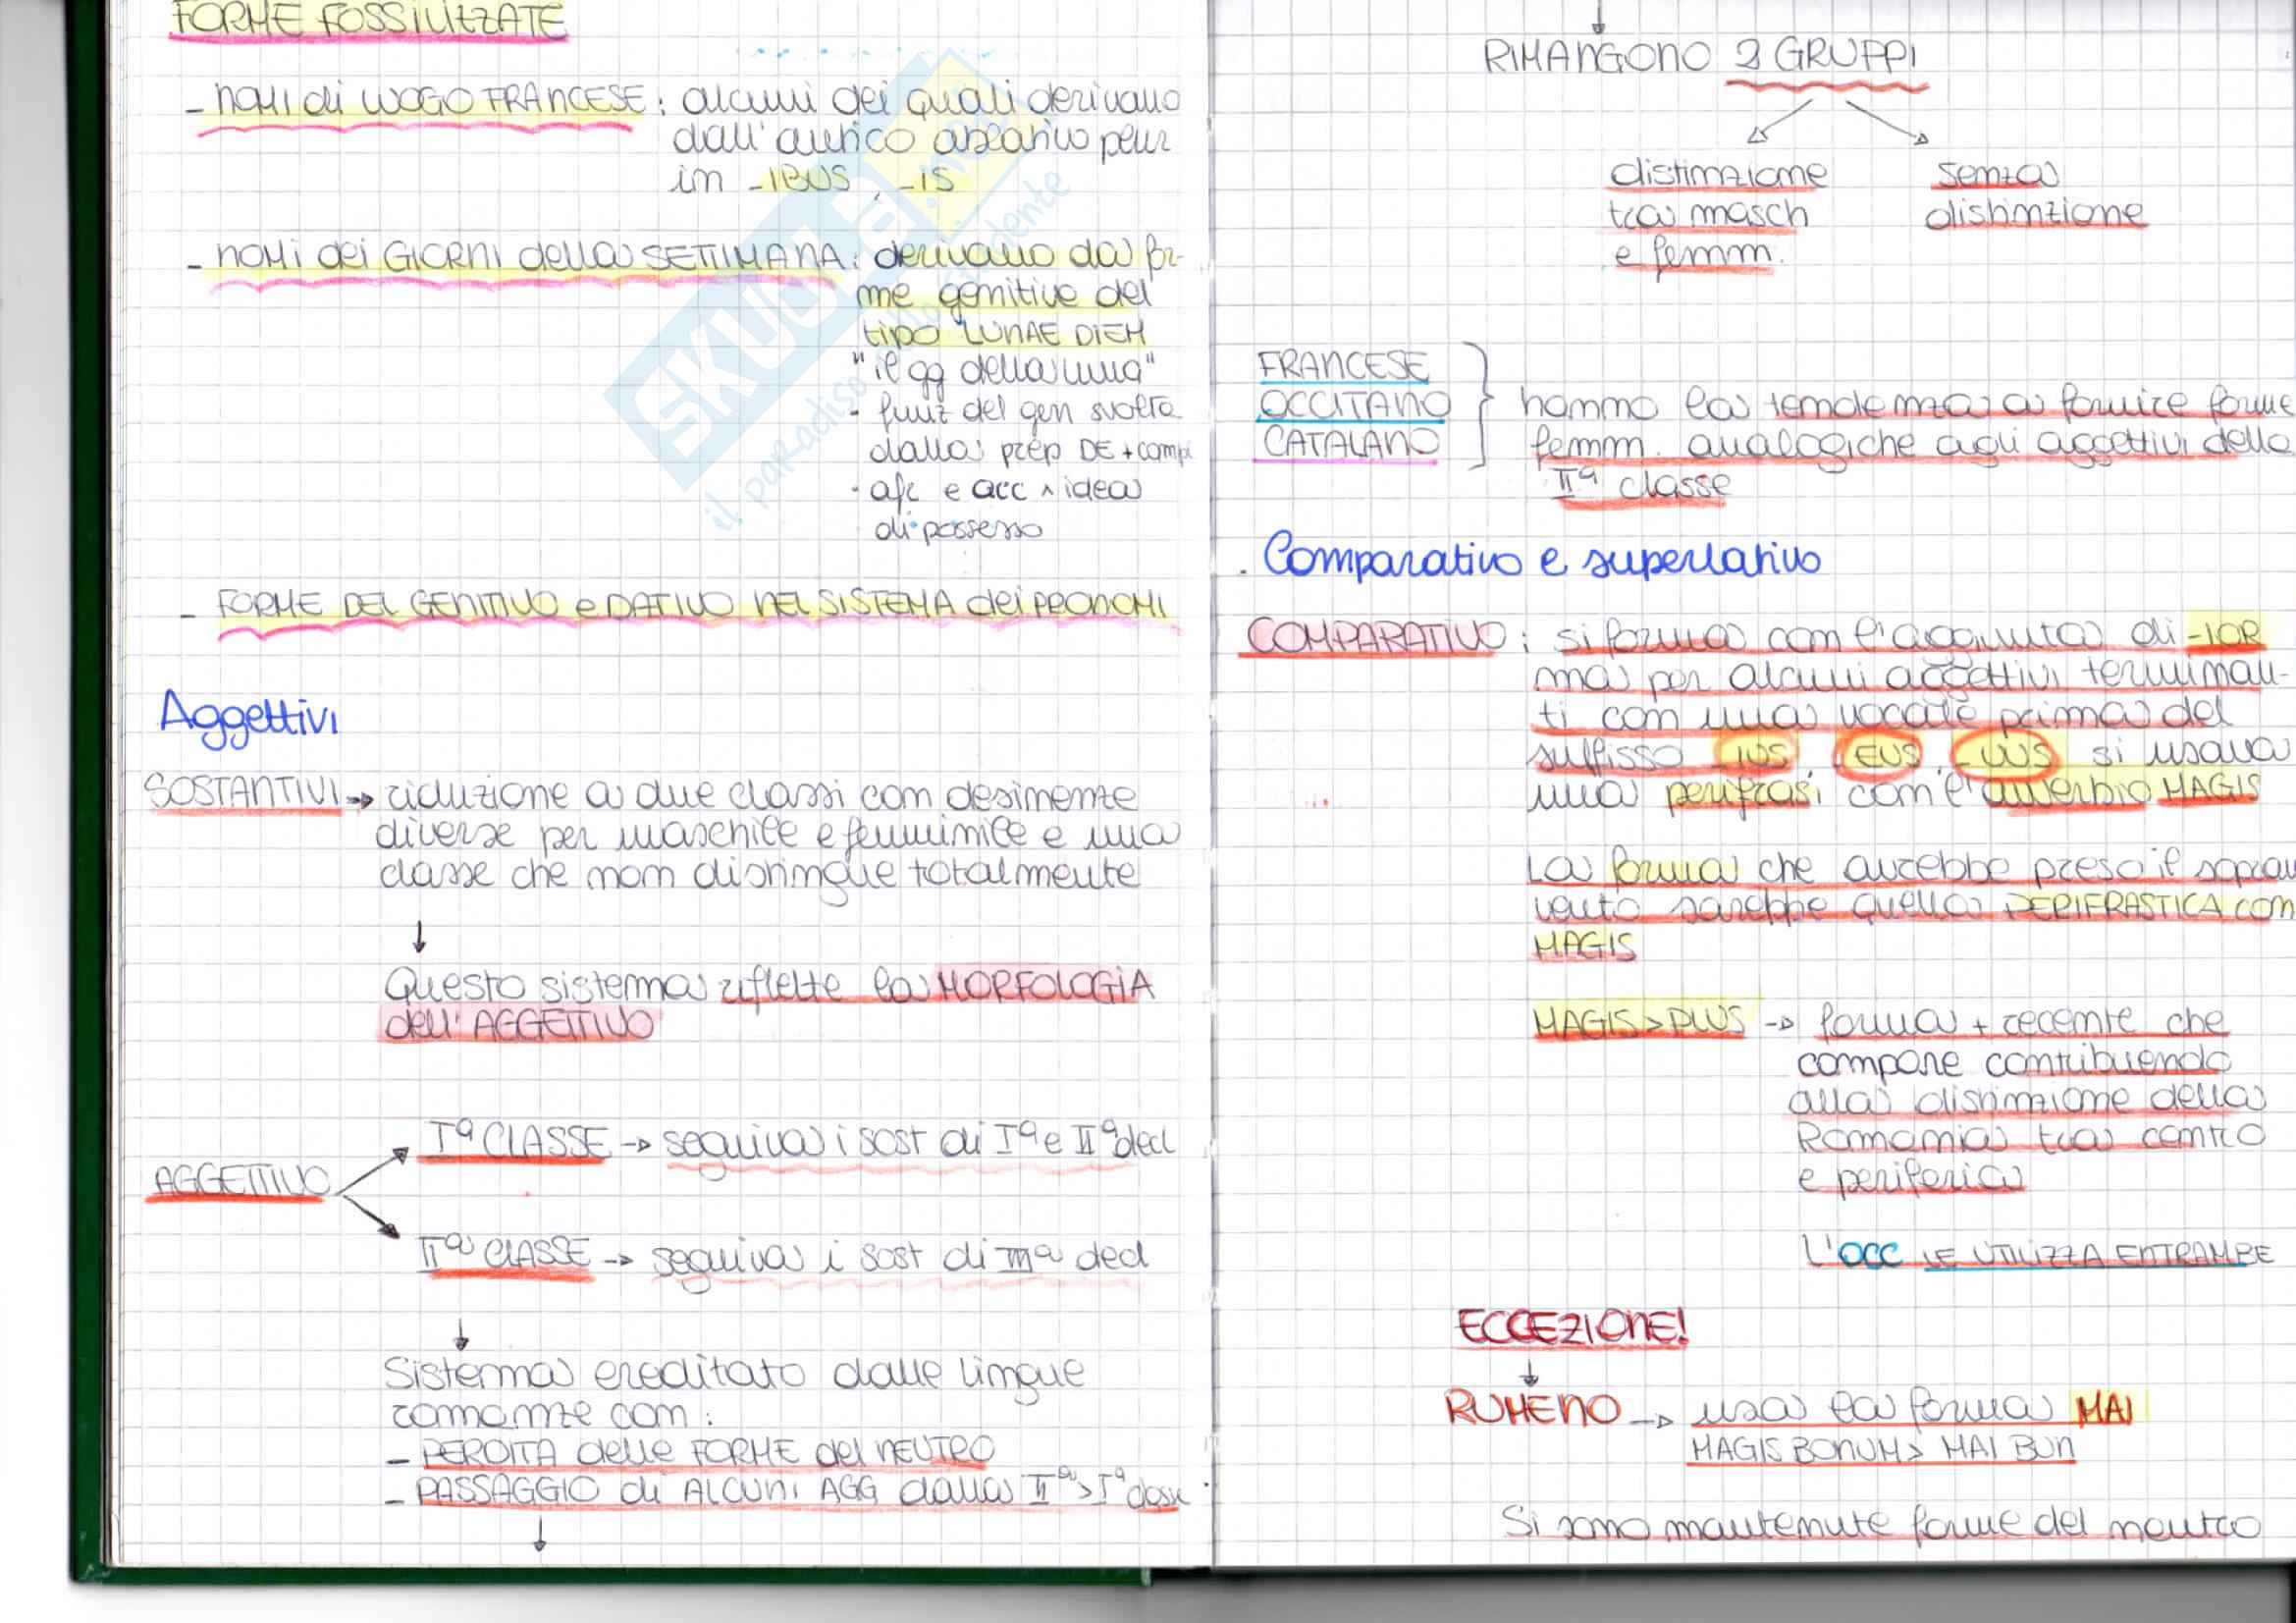 FORME FOSSILIZZATE
- NOMI di LUOGO FRANCESE: alcuni dei quali derivano
dall'antico ablativo plur
in -IBUS, -IS
- NOMI dei GIORNI della SETTIMANA: derivano da for-
me genitive del
tipo LUNAE DIEM
"il gg della luna"
- funz del gen svolta
dalla prep DE + compl
e acc idea
di possesso
- FORME DEL GENITIVO e DATIVO NEL SISTEMA dei PRONOMI
Aggettivi
SOSTANTIVI → riduzione a due classi con desinenze
diverse per maschile e femminile e una
classe che non distingue totalmente
↓
Questo sistema riflette la MORFOLOGIA
dell'AGGETTIVO
AGGETTIVO
Iª CLASSE → seguiva i sost di Iª e IIª decl
IIª CLASSE → seguiva i sost di IIIª decl
↓
Sistema ereditato dalle lingue
romanze con:
- PERDITA delle FORME del NEUTRO
- PASSAGGIO di ALCUNI AGG dalla IIª > Iª classe
↓
↓
RIMANGONO 2 GRUPPI
distinzione
tra masch
e femm.
senza
distinzione
FRANCESE
OCCITANO
CATALANO
hanno la tendenza a fornire forme
femm. analogiche agli aggettivi della
IIª classe
. Comparativo e superlativo
COMPARATIVO: si forma con l'aggiunta di -IOR
ma per alcuni aggettivi terminan-
ti con una vocale prima del
suffisso -IUS, -EUS, -UUS si usava
una perifrasi con l'avverbio MAGIS
La forma che avrebbe preso il soprav
vento sarebbe quella PERIFRASTICA con
MAGIS
MAGIS > PLUS → forma + recente che
compare contribuendo
alla distinzione della
Romania tra centro
e periferia
L'OCC LE UTILIZZA ENTRAMBE
ECCEZIONE!
↓
RUMENO → usa la forma MAI
MAGIS BONUM > MAI BUN
Si sono mantenute forme del neutro
SKUOLA.net
il paradiso dello studente